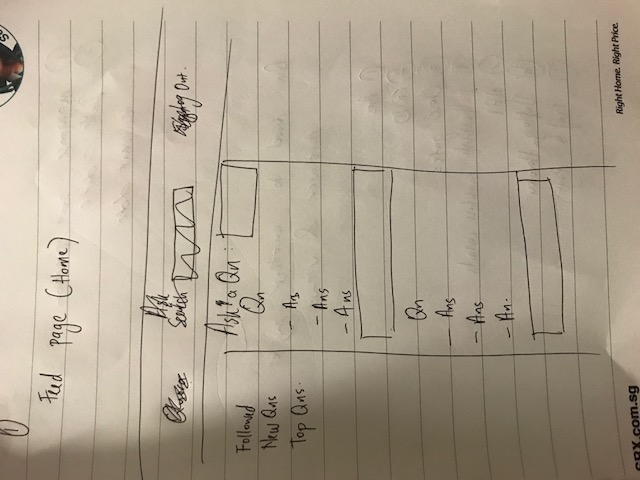 1
Feed page (Home)
Ask
Search
Log Out.
Ask a Qn :
Followed
New Qns
Top Qns.
Qn
- Ans
- Ans
- Ans
Qn
- Ans
- Ans
- An.
SRX.com.sg
Right Home. Right Price.